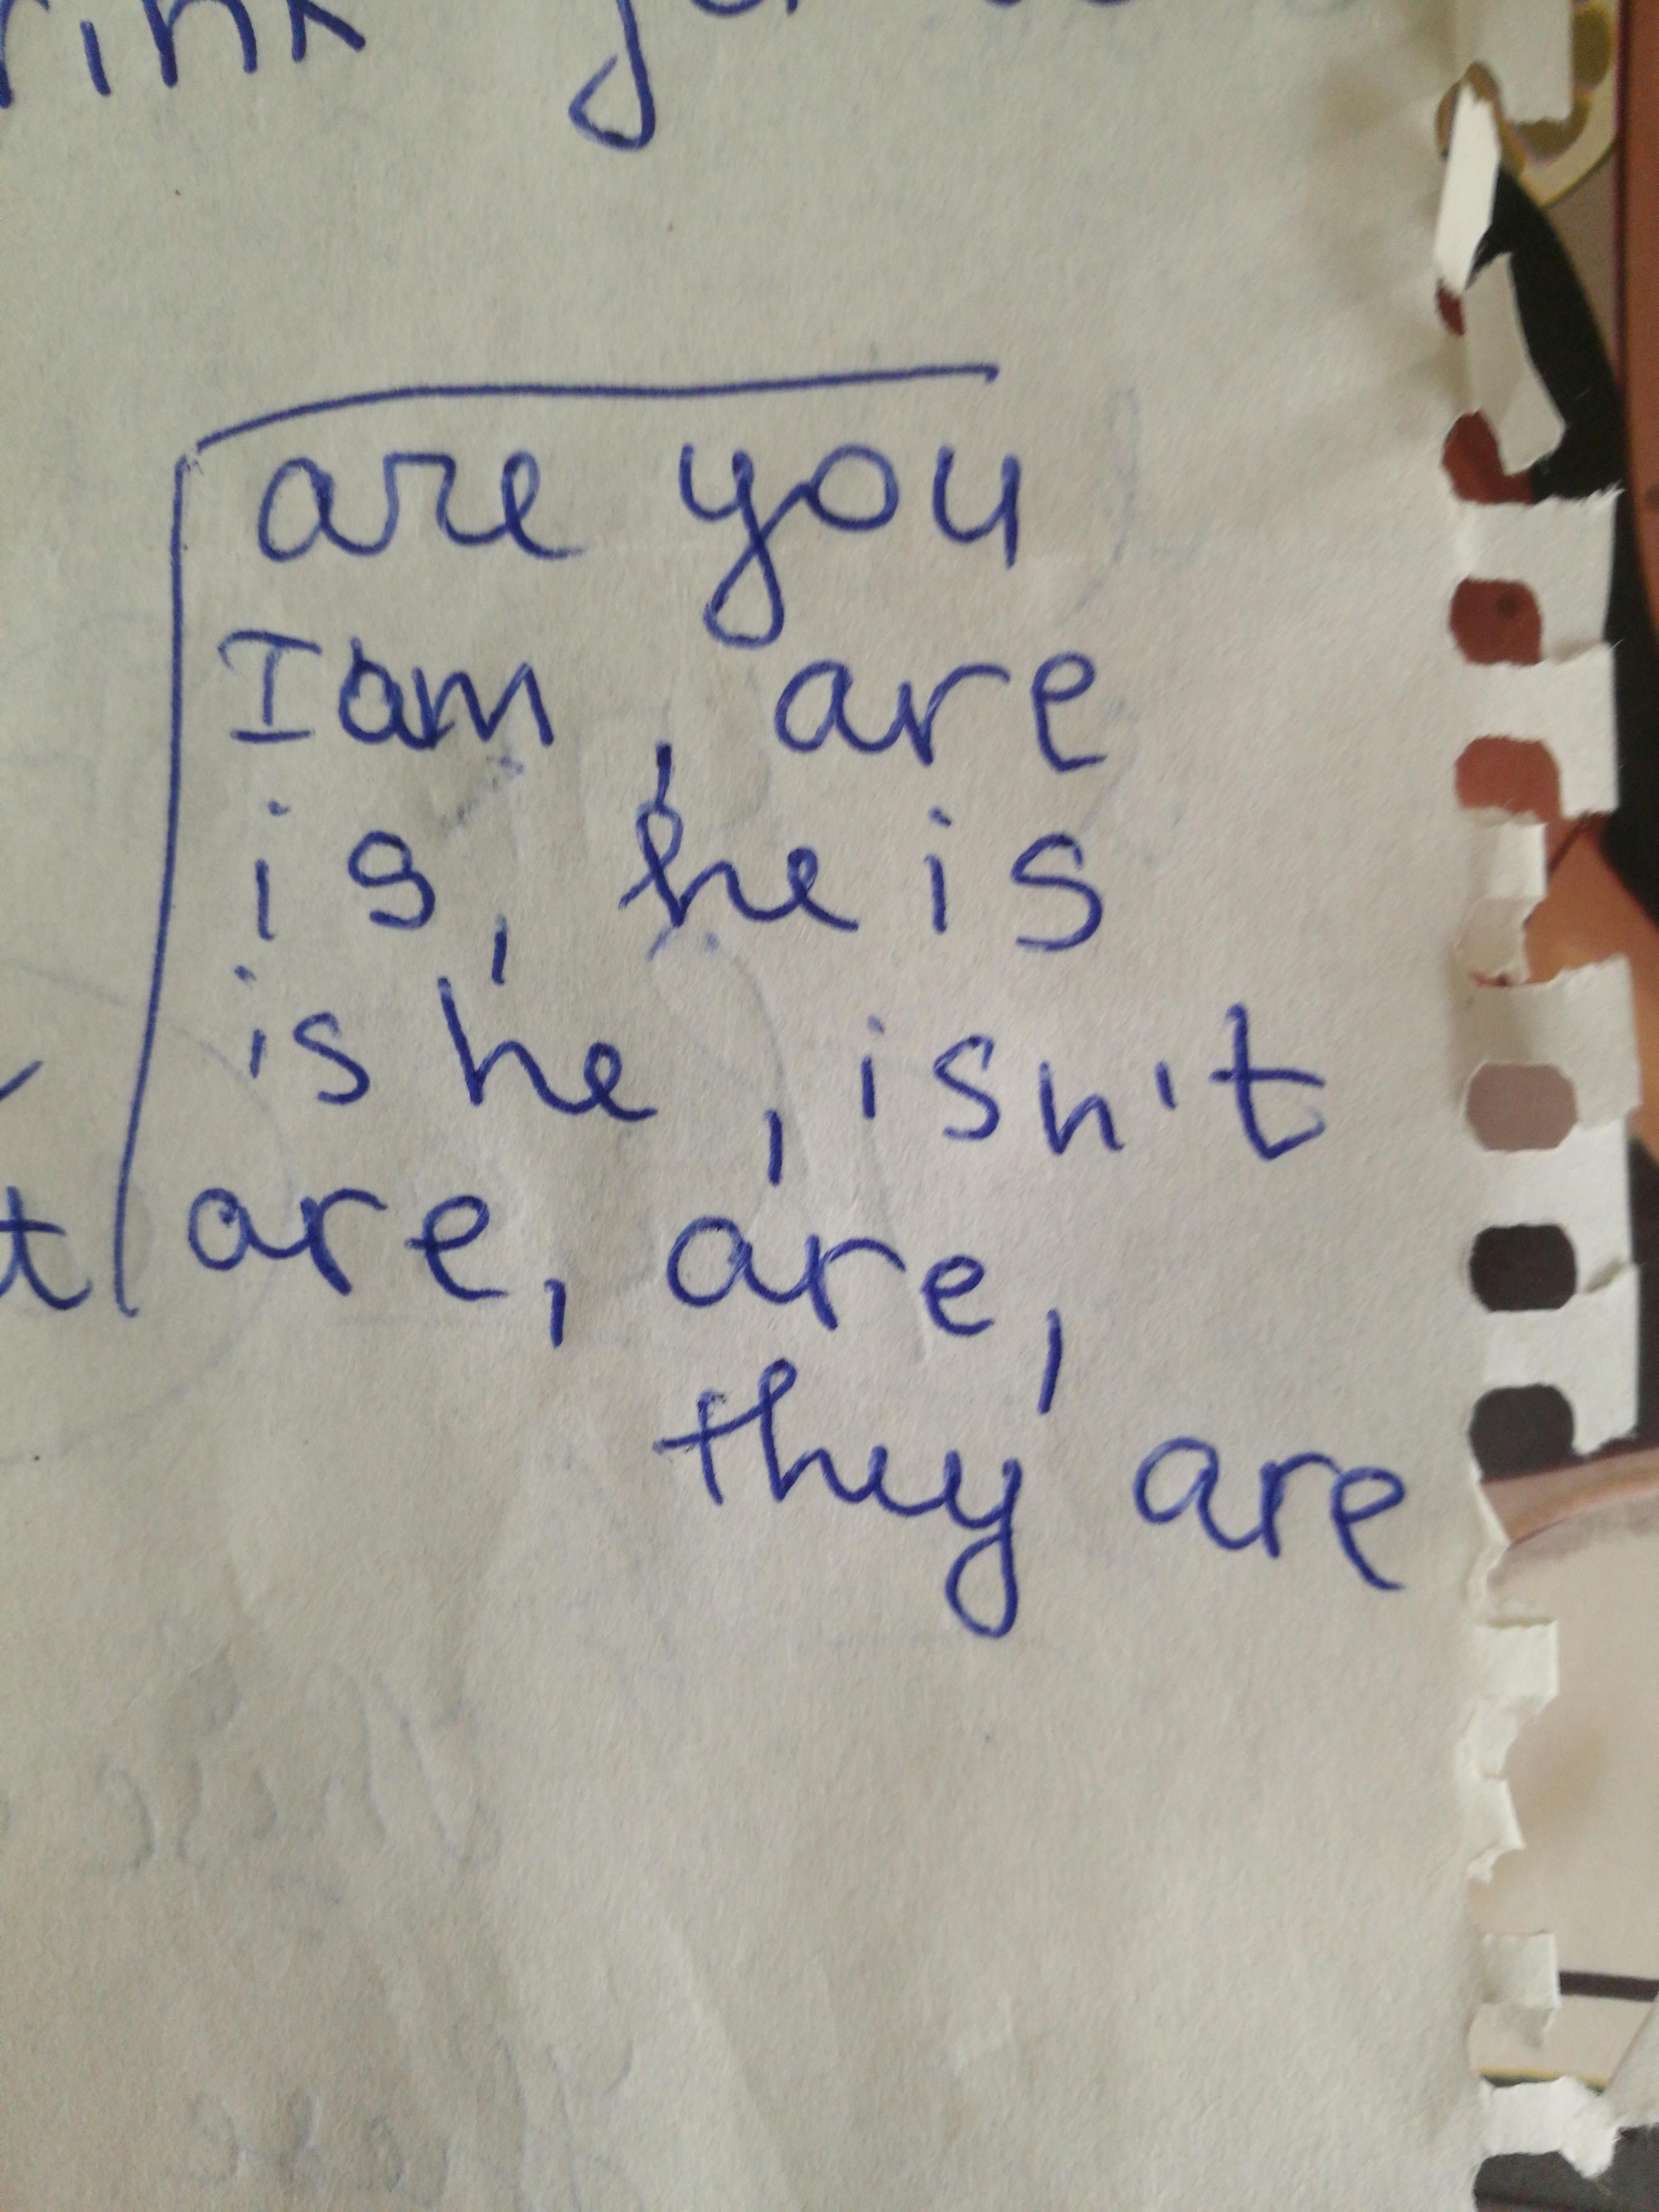 are you
I am, are
is, he is
is he, isn't
are, are,
they are